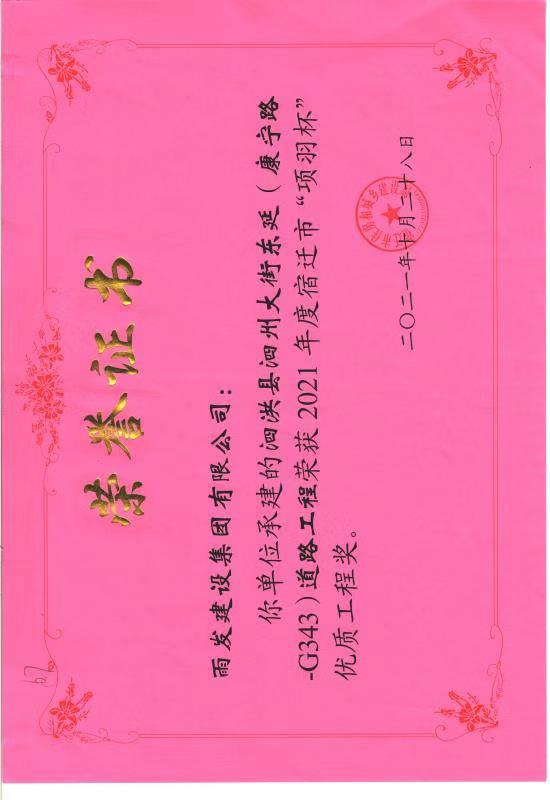 荣誉证书
雨发建设集团有限公司：
你单位承建的泗洪县泗州大街东延（康宁路
-G343）道路工程荣获2021年度宿迁市“项羽杯”
优质工程奖。
二〇二一年十月二十八日
67